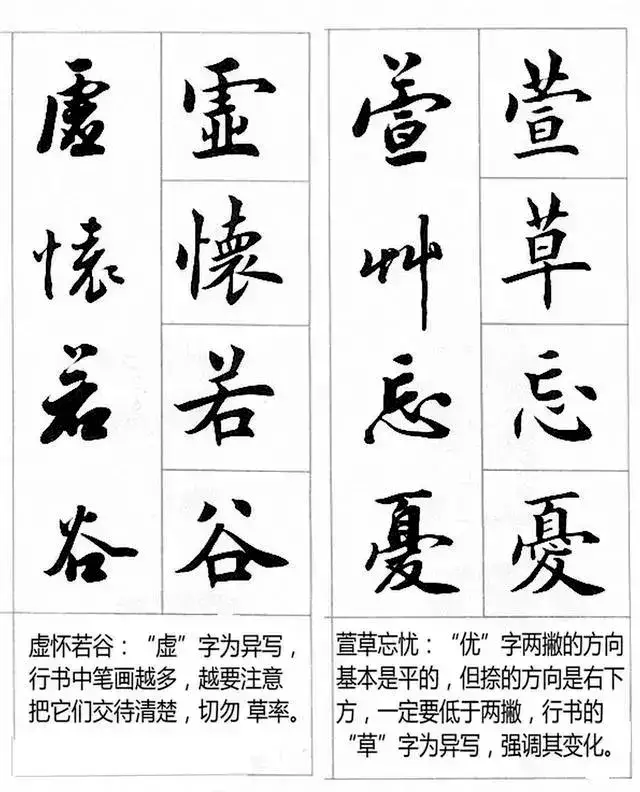 虛懷若谷
虛懷若谷
萱艸忘憂
萱草忘憂
虚怀若谷：“虚”字为异写，
行书中笔画越多，越要注意
把它们交待清楚，切勿 草率。
萱草忘忧：“优”字两撇的方向
基本是平的，但捺的方向是右下
方，一定要低于两撇，行书的
“草”字为异写，强调其变化。